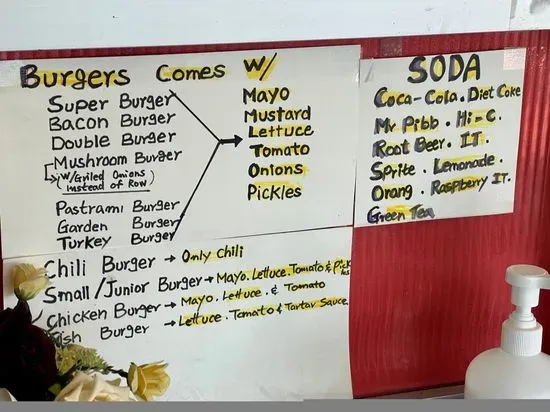 Burgers Comes W/
Super Burger
Bacon Burger
Double Burger
Mushroom Burger
W/Griled Onions
instead of Row)
Pastrami Burger
Garden Burger
Turkey Burger
Mayo
Mustard
Lettuce
Tomato
Onions
Pickles
Chili Burger → Only Chili
Small/Junior Burger → Mayo. Lettuce. Tomato & Pickles
Chicken Burger → Mayo, Lettuce. & Tomato
Fish Burger → Lettuce. Tomato & Tartar Sauce
SODA
Coca-Cola. Diet Coke
Mr Pibb. Hi-C.
Root Beer. I.T.
Sprite. Lemonade.
Orang. Raspberry I.T.
Green Tea